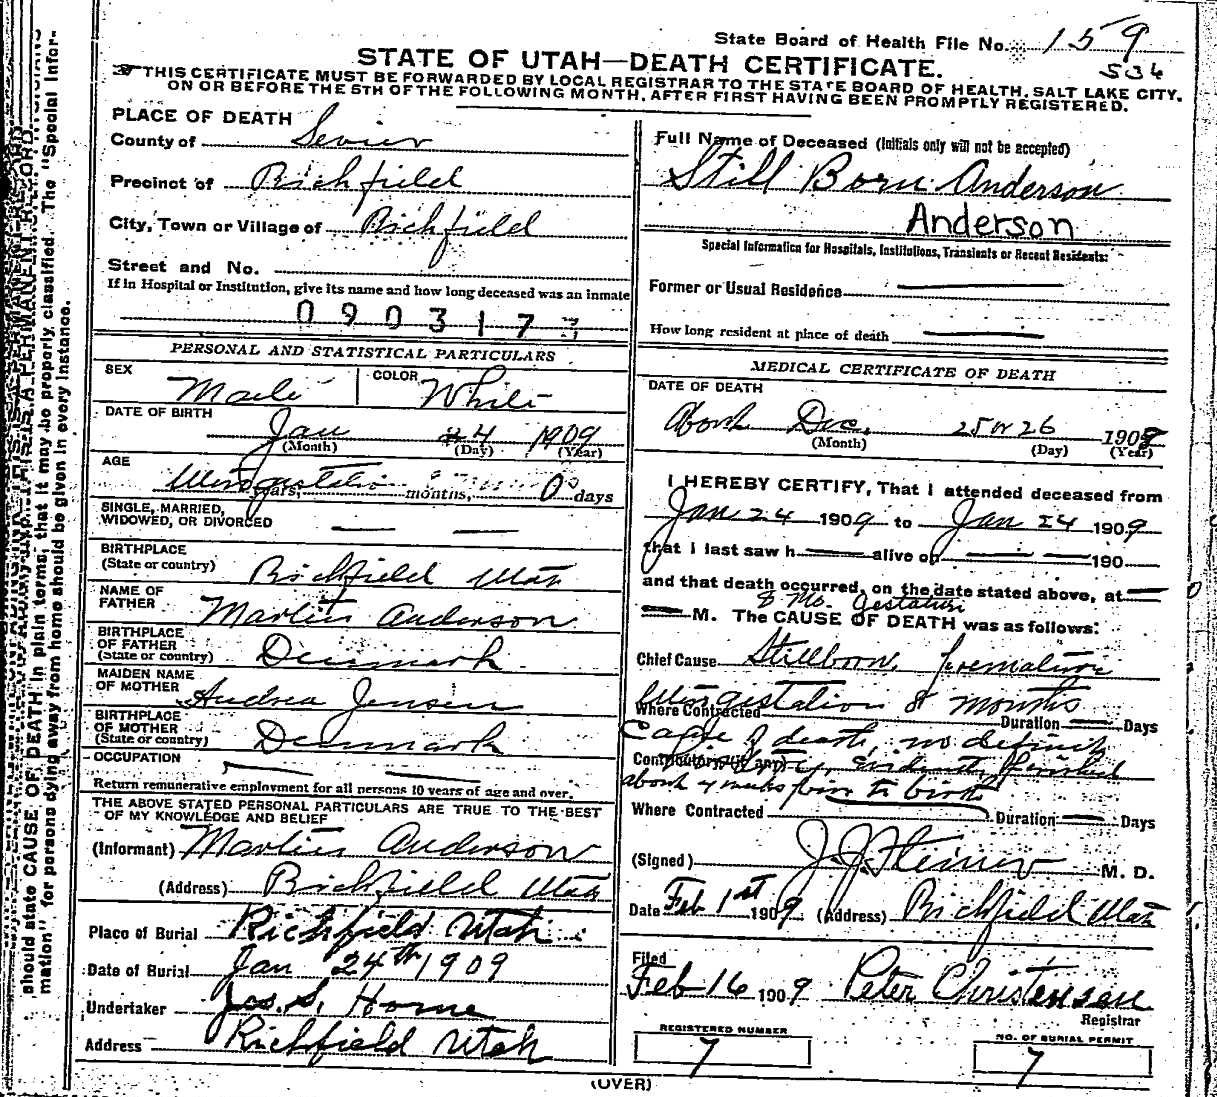 State Board of Health File No. 159
534
STATE OF UTAH—DEATH CERTIFICATE.
THIS CERTIFICATE MUST BE FORWARDED BY LOCAL REGISTRAR TO THE STATE BOARD OF HEALTH, SALT LAKE CITY,
ON OR BEFORE THE 5TH OF THE FOLLOWING MONTH, AFTER FIRST HAVING BEEN PROMPTLY REGISTERED.
PLACE OF DEATH
County of Sevier
Precinct of Richfield
City, Town or Village of Richfield
Street and No.
If in Hospital or Institution, give its name and how long deceased was an inmate
090317
PERSONAL AND STATISTICAL PARTICULARS
SEX Male COLOR White
DATE OF BIRTH
Jan 24 1909
(Month) (Day) (Year)
AGE
gestation years, months, 0 days
SINGLE, MARRIED,
WIDOWED, OR DIVORCED
BIRTHPLACE
(State or country) Richfield Utah
NAME OF
FATHER Martin Anderson
BIRTHPLACE
OF FATHER
(State or country) Denmark
MAIDEN NAME
OF MOTHER Andrea Jensen
BIRTHPLACE
OF MOTHER
(State or country) Denmark
OCCUPATION
Return remunerative employment for all persons 10 years of age and over.
THE ABOVE STATED PERSONAL PARTICULARS ARE TRUE TO THE BEST
OF MY KNOWLEDGE AND BELIEF
(Informant) Martin Anderson
(Address) Richfield Utah
Place of Burial Richfield Utah
Date of Burial Jan 24th 1909
Undertaker Jos. S. Horne
Address Richfield Utah
Full Name of Deceased (Initials only will not be accepted)
Still Born Anderson
Anderson
Special Information for Hospitals, Institutions, Transients or Recent Residents:
Former or Usual Residence
How long resident at place of death
MEDICAL CERTIFICATE OF DEATH
DATE OF DEATH
About Dec. 25 or 26 1908
(Month) (Day) (Year)
I HEREBY CERTIFY, That I attended deceased from
Jan 24 1909 to Jan 24 1909
that I last saw h alive on 190
and that death occurred, on the date stated above, at
8 Mo. Gestation
M. The CAUSE OF DEATH was as follows:
Chief Cause Stillborn, premature
gestation 8 months
Where Contracted Duration Days
Cause of death, no definite
Contributory (if any) evidently perished
about 4 weeks prior to birth
Where Contracted Duration Days
(Signed) J. J. Steiner M. D.
Date Feb 1st 1909 (Address) Richfield Utah
Filed
Feb 16 1909 Peter Christensen
Registrar
REGISTERED NUMBER
7
NO. OF BURIAL PERMIT
7
(OVER)
should state CAUSE OF DEATH in plain terms, that it may be properly classified. The "Special Infor-
mation" for persons dying away from home should be given in every instance.